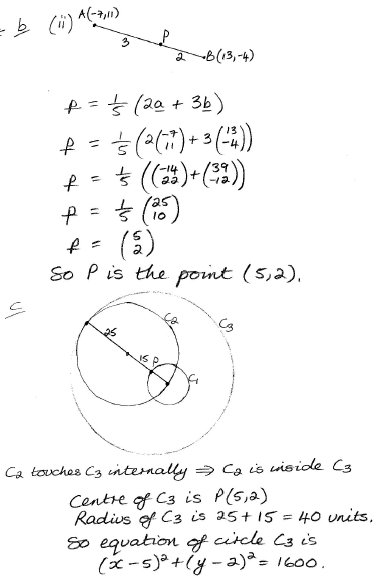 b (ii) A(-7,11)
3 P
2 B(13,-4)
p = 1/5 (2a + 3b)
p = 1/5 (2(-7 11) + 3(13 -4))
p = 1/5 ((-14 22) + (39 -12))
p = 1/5 (25 10)
p = (5 2)
So P is the point (5,2).
c C2 C3
25
15 P
C1
C2 touches C3 internally ⇒ C2 is inside C3
Centre of C3 is P(5,2)
Radius of C3 is 25 + 15 = 40 units.
So equation of circle C3 is
(x - 5)² + (y - 2)² = 1600.